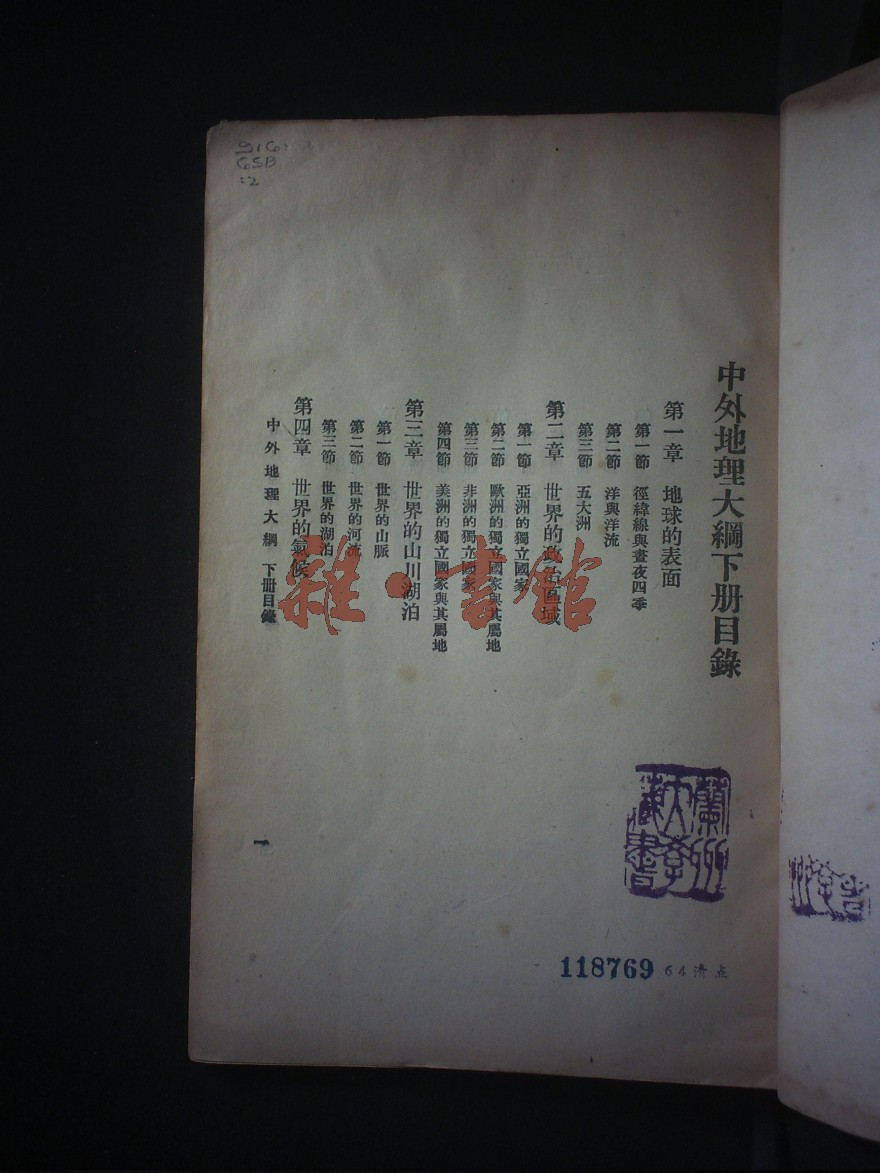 中外地理大綱下册目錄
第一章　地球的表面
第一節　徑緯線與晝夜四季
第二節　洋與洋流
第三節　五大洲
第二章　世界的政治區域
第一節　亞洲的獨立國家
第二節　歐洲的獨立國家與其屬地
第三節　非洲的獨立國家與其屬地
第四節　美洲的獨立國家與其屬地
第三章　世界的山川湖泊
第一節　世界的山脈
第二節　世界的河流
第三節　世界的湖泊
第四章　世界的氣候
中外地理大綱　下册目錄
一
雜·書館
蘭州
大學
藏書
118769
64清点
916:
GSB
:2